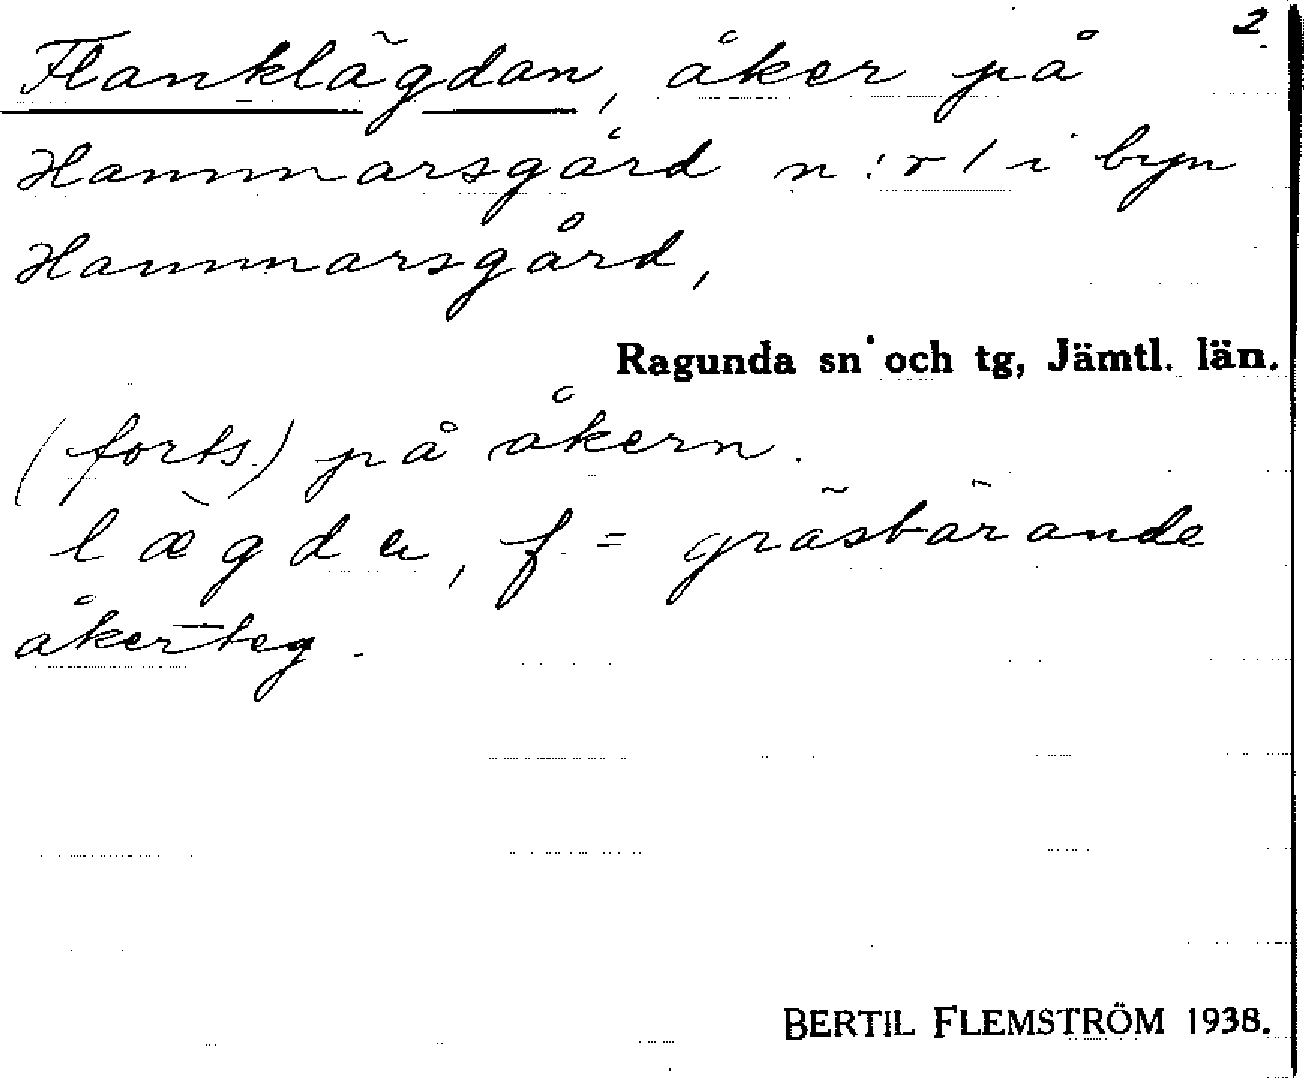 2
Flanklägdan, åker på
Hammarsgård n:r 1 i byn
Hammarsgård,
Ragunda sn och tg, Jämtl. län.
(forts.) på åkern.
lægda, f = gräsbärande
åkerteg.
BERTIL FLEMSTRÖM 1938.